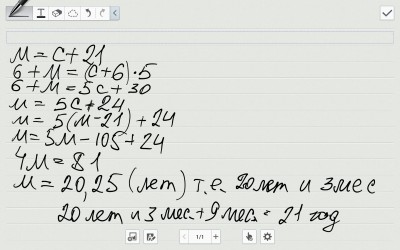 м = с + 21
6 + м = (с + 6) · 5
6 + м = 5с + 30
м = 5с + 24
м = 5(м - 21) + 24
м = 5м - 105 + 24
4м = 81
м = 20,25 (лет) т.е. 20 лет и 3 мес
20 лет и 3 мес + 9 мес = 21 год
1/1